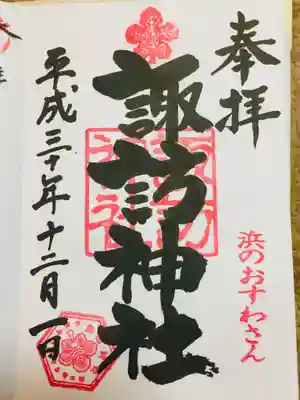 奉拝
浜のおすわさん
諏訪神社
平成三十年十二月一日